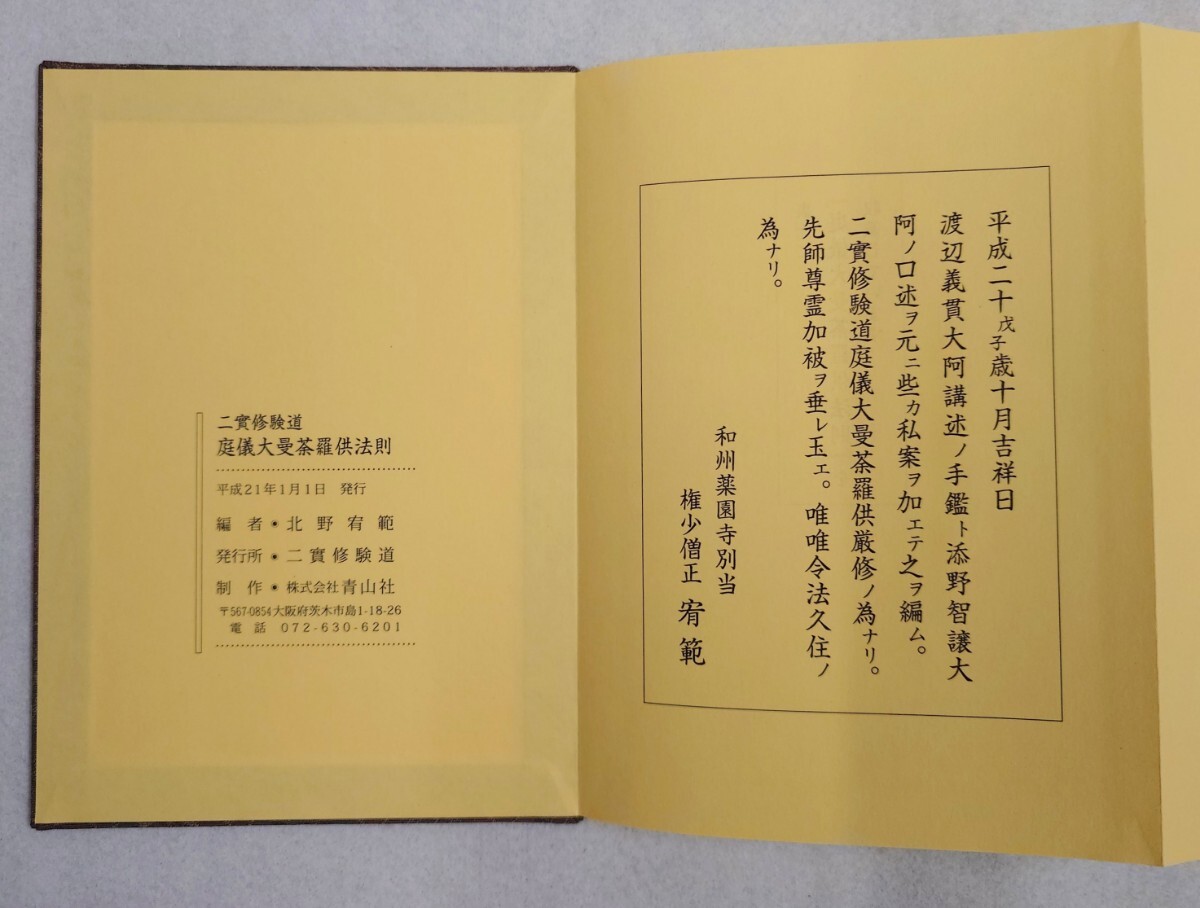 平成二十戊子歳十月吉祥日
渡辺義貫大阿講述ノ手鑑ト添野智譲大
阿ノ口述ヲ元ニ些カ私案ヲ加エテ之ヲ編ム。
二實修験道庭儀大曼荼羅供厳修ノ為ナリ。
先師尊霊加被ヲ垂レ玉エ。唯唯令法久住ノ
為ナリ。
和州薬園寺別当
権少僧正 宥範
二實修験道
庭儀大曼荼羅供法則
平成21年1月1日 発行
編者●北野宥範
発行所●二實修験道
制作●株式会社青山社
〒567-0854大阪府茨木市島1-18-26
電話 072-630-6201